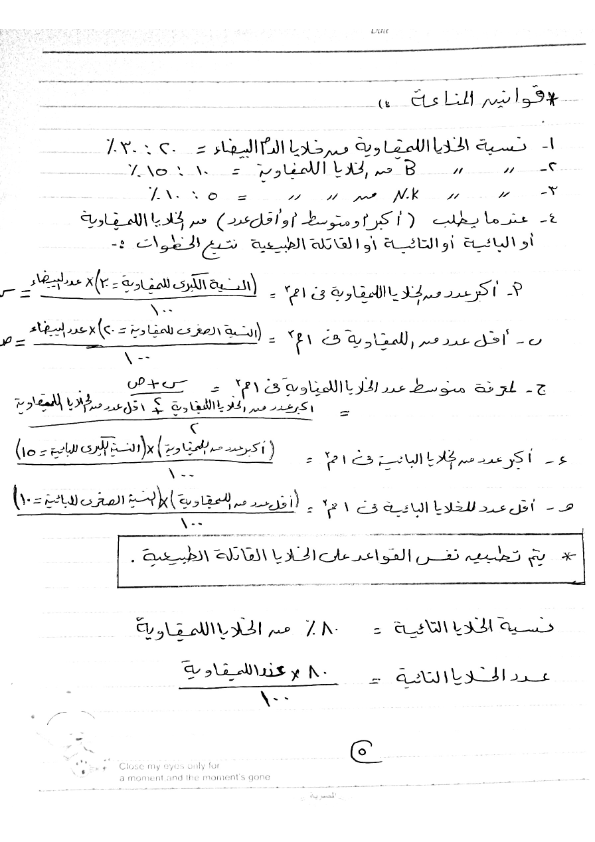 * قوانين المناعة :-
١- نسبة الخلايا الليمفاوية من خلايا الدم البيضاء = ٢٠ : ٣٠ ٪
٢- " " B من الخلايا الليمفاوية = ١٠ : ١٥ ٪
٣- " " N.K من " " = ٥ : ١٠ ٪
٤- عندما يطلب (أكبر أو متوسط أو أقل عدد) من الخلايا الليمفاوية
أو البائية أو التائية أو القاتلة الطبيعية نتبع الخطوات :-
٢- أكبر عدد من الخلايا الليمفاوية فى ١م٣ = (النسبة الكبرى لليمفاوية = ٣٠) × عدد البيضاء / ١٠٠ = س
ب- أقل عدد من الليمفاوية فى ١م٣ = (النسبة الصغرى لليمفاوية = ٢٠) × عدد البيضاء / ١٠٠ = ص
ج- لمعرفة متوسط عدد الخلايا الليمفاوية فى ١م٣ = س + ص / ٢
= أكبر عدد من الخلايا الليمفاوية + أقل عدد من الخلايا الليمفاوية / ٢
ء- أكبر عدد من الخلايا البائية فى ١م٣ = (أكبر عدد من الليمفاوية) × (النسبة الكبرى للبائية = ١٥) / ١٠٠
هـ- أقل عدد للخلايا البائية فى ١م٣ = (أقل عدد من الليمفاوية) × (النسبة الصغرى للبائية = ١٠) / ١٠٠
* يتم تطبيق نفس القواعد على الخلايا القاتلة الطبيعية .
نسبة الخلايا التائية = ٨٠ ٪ من الخلايا الليمفاوية
عدد الخلايا التائية = ٨٠ × عدد الليمفاوية / ١٠٠
٥
Close my eyes only for
a moment and the moment's gone